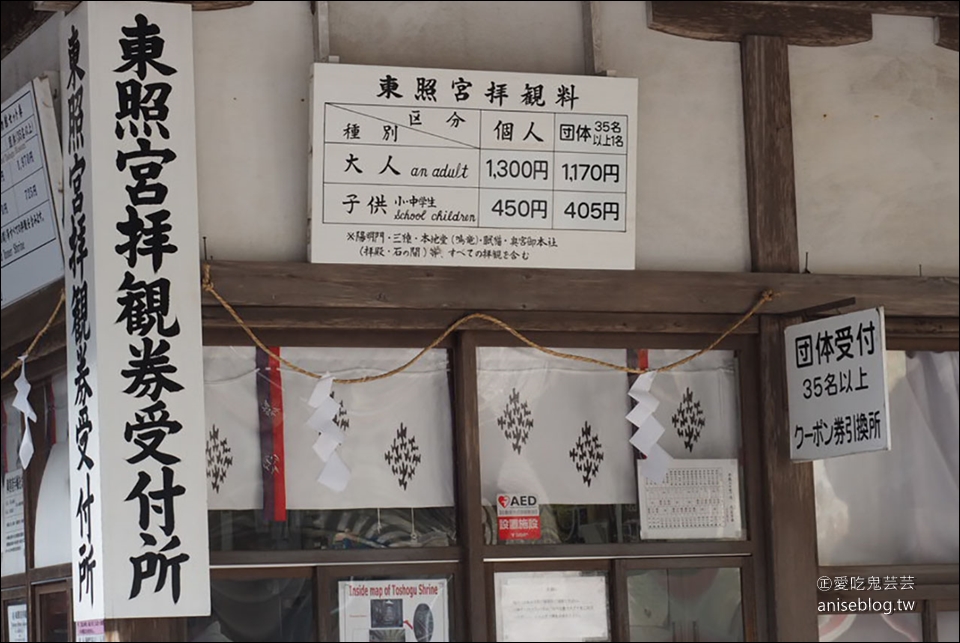 東照宮拝観券受付所
東照宮拝観券受付所
東照宮拝観料
区分
種別
個人
団体 35名以上1名
大人 an adult 1,300円 1,170円
子供 小・中学生 School children 450円 405円
※陽明門・三猿・本地堂(鳴竜)・眠猫・奥宮御本社
(拝殿・石の間)等、すべての拝観を含む
団体受付
35名以上
クーポン券引換所
AED
設置施設
Inside map of Toshogu Shrine
㊣愛吃鬼芸芸
aniseblog.tw